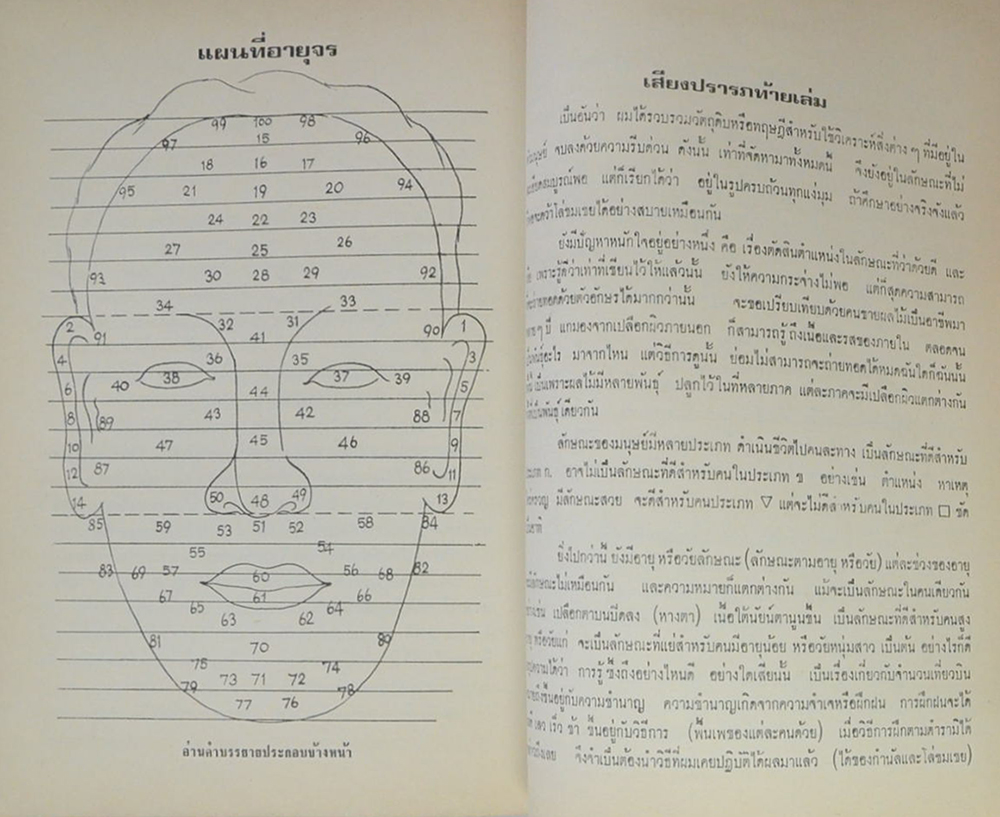 แผนที่อายุจร
99 100 98
97 15 96
18 16 17
95 21 19 20 94
24 22 23
27 25 26
93 30 28 29 92
34 33
2 32 31 1
91 41 90
4 36 35 3
40 38 37 39
6 44 5
8 89 43 42 88 7
10 47 45 46 9
12 87 86 11
14 50 48 49 13
85 59 53 51 52 58 84
55 54
83 69 57 60 56 68 82
67 61 66
65 64
63 62
81 70 80
75 74
79 73 71 72 78
77 76
อ่านคำบรรยายประกอบข้างหน้า
เสียงปรารภท้ายเล่ม
เป็นอันว่า ผมได้รวบรวมวัตถุดิบหรือทฤษฎีสำหรับใช้วิเคราะห์สิ่งต่าง ๆ ที่มีอยู่ใน
จบลงด้วยความรีบด่วน ดังนั้น เท่าที่จัดหามาทั้งหมดนี้ จึงยังอยู่ในลักษณะที่ไม่
สมบูรณ์พอ แต่ก็เรียกได้ว่า อยู่ในรูปครบถ้วนทุกแง่มุม ถ้าศึกษาอย่างจริงจังแล้ว
ได้อย่างสบายเหมือนกัน
ยังมีปัญหาหนักใจอยู่อย่างหนึ่ง คือ เรื่องตัดสินตำแหน่งในลักษณะที่ว่าด้วยดี และ
เพราะรู้ดีว่าเท่าที่เขียนไว้ให้แล้วนั้น ยังให้ความกระจ่างไม่พอ แต่ก็สุดความสามารถ
ด้วยตัวอักษรได้มากกว่านั้น จะขอเปรียบเทียบด้วยคนขายผลไม้เป็นอาชีพมา
แกมองจากเปลือกผิวภายนอก ก็สามารถรู้ถึงเนื้อและรสของภายใน ตลอดจน
อะไร มาจากไหน แต่วิธีการดูนั้น ย่อมไม่สามารถจะถ่ายทอดได้หมดฉันใดก็ฉันนั้น
เพราะผลไม้มีหลายพันธุ์ ปลูกไว้ในที่หลายภาค แต่ละภาคจะมีเปลือกผิวแตกต่างกัน
พันธุ์เดียวกัน
ลักษณะของมนุษย์มีหลายประเภท ดำเนินชีวิตไปคนละทาง เป็นลักษณะที่ดีสำหรับ
ก. อาจไม่เป็นลักษณะที่ดีสำหรับคนในประเภท ข อย่างเช่น ตำแหน่ง หาเหตุ
มีลักษณะสวย จะดีสำหรับคนประเภท ▽ แต่จะไม่ดีสำหรับคนในประเภท □ ชัด
ยิ่งไปกว่านี้ ยังมีอายุ หรือวัยลักษณะ (ลักษณะตามอายุ หรือวัย) แต่ละช่วงของอายุ
ลักษณะไม่เหมือนกัน และความหมายก็แตกต่างกัน แม้จะเป็นลักษณะในคนเดียวกัน
เช่น เปลือกตาบนปิดลง (หางตา) เนื้อใต้นัยน์ตานูนขึ้น เป็นลักษณะที่ดีสำหรับคนสูง
หรือวัยแก่ จะเป็นลักษณะที่แย่สำหรับคนมีอายุน้อย หรือวัยหนุ่มสาว เป็นต้น อย่างไรก็ดี
ความได้ว่า การรู้ซึ้งถึงอย่างไหนดี อย่างใดเสียนั้น เป็นเรื่องเกี่ยวกับจำนวนเที่ยวบิน
ขึ้นอยู่กับความชำนาญ ความชำนาญเกิดจากความจำเจหรือฝึกฝน การฝึกฝนจะได้
เร็ว ช้า ขึ้นอยู่กับวิธีการ (พื้นเพของแต่ละคนด้วย) เมื่อวิธีการฝึกตามตำรามิได้
จึงจำเป็นต้องนำวิธีที่ผมเคยปฏิบัติได้ผลมาแล้ว (ได้ของกำนัลและโล่ชมเชย)